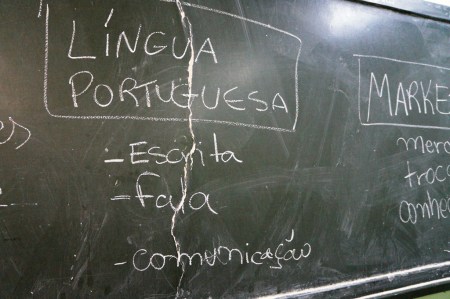 LÍNGUA
PORTUGUESA
- Escrita
- fala
- comunicação
MARKE
merc
troca
conhe